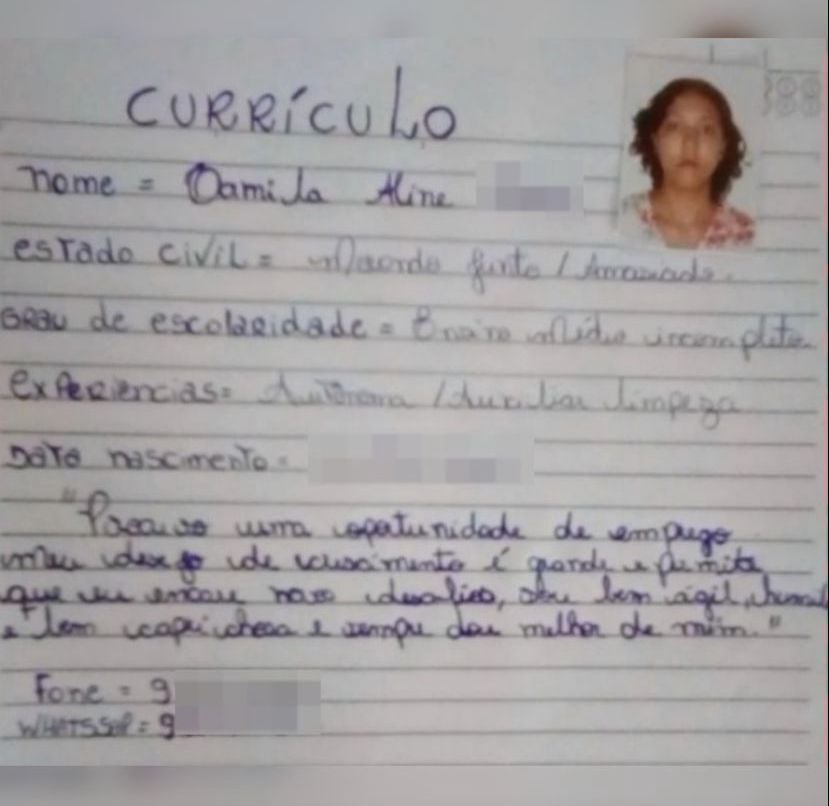 CURRÍCULO
nome = Damila Aline
estado civil = Morando junto / Amasiado.
Grau de escolaridade = Ensino Médio incompleto
experiencias = Autônoma / Auxiliar limpeza
Data nascimento =
"Procuro uma oportunidade de emprego
meu desejo de crescimento é grande e permita
que eu encare novo desafios, sou bem ágil,
e bem caprichosa e sempre dou melhor de mim."
Fone = 9
WHATSSAP = 9